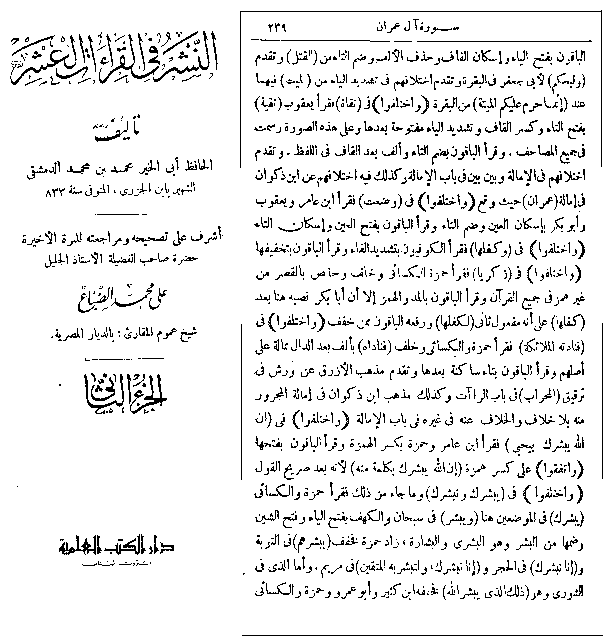 النشر في القراءات العشر
تأليف
الحافظ أبى الخير محمد بن محمد الدمشقى
الشهير بابن الجزرى، المتوفى سنة ٨٣٣
أشرف على تصحيحه ومراجعته للمرة الأخيرة
حضرة صاحب الفضيلة الأستاذ الجليل
على محمد الضباع
شيخ عموم المقارئ: بالديار المصرية.
الجزء الثانى
دار الكتب العلمية
بيروت لبنان
سورة آل عمران ٢٣٩
الباقون بفتح الياء وإسكان القاف وحذف الألف وضم التاء من (القتل) وتقدم
(وليحكم) لأبى جعفر فى البقرة وتقدم اختلافهم فى تشديد الياء من (الميت) فيها
عند (إنما حرم عليكم الميتة) من البقرة (واختلفوا) فى (تقاة) فقرأ يعقوب (تقية)
بفتح التاء وكسر القاف وتشديد الياء مفتوحة بعدها وعلى هذه الصورة رسمت
فى جميع المصاحف. وقرأ الباقون بضم التاء وألف بعد القاف فى اللفظ. وتقدم
اختلافهم فى الإمالة وبين بين فى باب الإمالة وكذلك فيه اختلافهم عن ابن ذكوان
فى إمالة (عمران) حيث وقع (واختلفوا) فى (وضعت) فقرأ ابن عامر ويعقوب
وأبو بكر بإسكان العين وضم التاء وقرأ الباقون بفتح العين وإسكان التاء
(واختلفوا) فى (وكفلها) فقرأ الكوفيون بتشديد الفاء وقرأ الباقون بتخفيفها
(واختلفوا) فى (زكريا) فقرأ حمزة والكسائى وخلف وحفص بالقصر من
غير همز فى جميع القرآن وقرأ الباقون بالمد والهمز إلا أن أبا بكر نصبه هنا بعد
(كفلها) على أنه مفعول ثانى (لكفلها) ورفعه الباقون ممن خفف (واختلفوا) فى
(فنادته الملائكة) فقرأ حمزة والكسائى وخلف (فناداه) بألف بعد الدال ممالة على
أصلهم وقرأ الباقون بتاء ساكنة بعدها وتقدم مذهب الأزرق عن ورش فى
ترقيق (المحراب) فى باب الراآت وكذلك مذهب ابن ذكوان فى إمالة المجرور
منه بلا خلاف والخلاف عنه فى غيره فى باب الإمالة (واختلفوا) فى (ان
الله يبشرك بيحيى) فقرأ ابن عامر وحمزة بكسر الهمزة وقرأ الباقون بفتحها
(واتفقوا) على كسر همزة (إن الله يبشرك بكلمة منه) لأنه بعد صريح القول
(واختلفوا) فى (يبشرك ونبشرك) وما جاء من ذلك فقرأ حمزة والكسائى
(يبشرك) فى الموضعين هنا (ويبشر) فى سبحان والكهف بفتح الياء وفتح الشين
وضمها من البشر وهو البشرى والبشارة، زاد حمزة فخفف (يبشرهم) فى التوبة
و(إنا نبشرك) فى الحجر و(إنا نبشرك، ولتبشر به المتقين) فى مريم. وأما الذى فى
الشورى وهو (ذلك الذى يبشر الله) فخففه ابن كثير وأبو عمرو وحمزة والكسائى